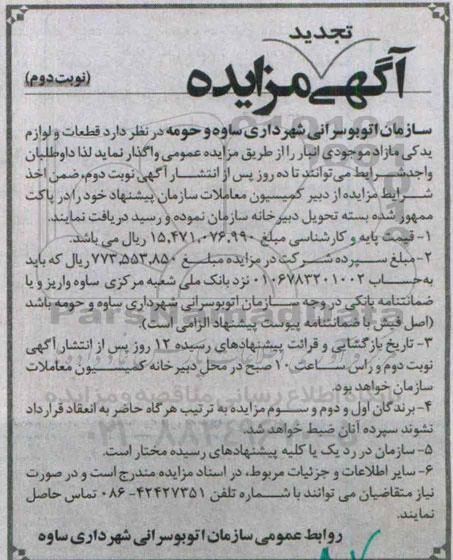 تجدید
آگهی مزایده
(نوبت دوم)
سازمان اتوبوسرانی شهرداری ساوه و حومه در نظر دارد قطعات و لوازم
یدکی مازاد موجودی انبار را از طریق مزایده عمومی واگذار نماید لذا داوطلبان
واجدشرایط می‌توانند تا ده روز پس از انتشار آگهی نوبت دوم، ضمن اخذ
شرایط مزایده از دبیر کمیسیون معاملات سازمان پیشنهاد خود را در پاکت
ممهور شده بسته تحویل دبیرخانه سازمان نموده و رسید دریافت نمایند.
۱- قیمت پایه و کارشناسی مبلغ ۱۵,۴۷۱,۰۷۶,۹۹۰ ریال می باشد.
۲- مبلغ سپرده شرکت در مزایده مبلغ ۷۷۳,۵۵۳,۸۵۰ ریال که باید
به‌حساب ۰۱۰۶۷۸۳۲۰۱۰۰۲ نزد بانک ملی شعبه مرکزی ساوه واریز و یا
ضمانتنامه بانکی در وجه سازمان اتوبوسرانی شهرداری ساوه و حومه باشد
(اصل فیش یا ضمانتنامه پیوست پیشنهاد الزامی است).
۳- تاریخ بازگشایی و قرائت پیشنهادهای رسیده ۱۲ روز پس از انتشار آگهی
نوبت دوم و راس ساعت ۱۰ صبح در محل دبیرخانه کمیسیون معاملات
سازمان خواهد بود.
۴- برندگان اول و دوم و سوم مزایده به ترتیب هرگاه حاضر به انعقاد قرارداد
نشوند سپرده آنان ضبط خواهد شد.
۵- سازمان در رد یک یا کلیه پیشنهادهای رسیده مختار است.
۶- سایر اطلاعات و جزئیات مربوط، در اسناد مزایده مندرج است و در صورت
نیاز متقاضیان می توانند با شماره تلفن ۴۲۴۲۷۳۵۱-۰۸۶ تماس حاصل
نمایند.
روابط عمومی سازمان اتوبوسرانی شهرداری ساوه
ParsNamadData
پایگاه اطلاع رسانی مناقصه و مزایده